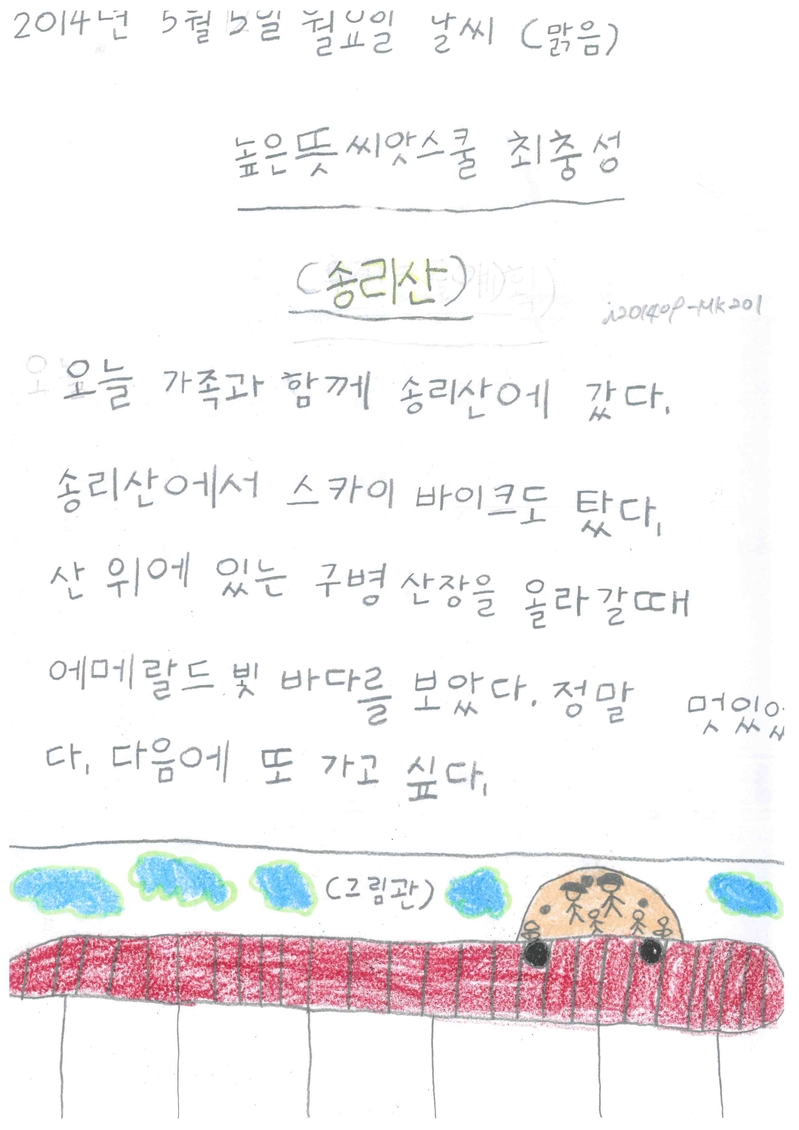 2014년 5월 5일 월요일 날씨 (맑음)
높은뜻 씨앗스쿨 최충성
(송리산)
오늘 가족과 함께 송리산에 갔다.
송리산에서 스카이 바이크도 탔다.
산 위에 있는 구병 산장을 올라갈때
에메랄드 빛 바다를 보았다. 정말 멋있었
다. 다음에 또 가고 싶다.
(그림관)